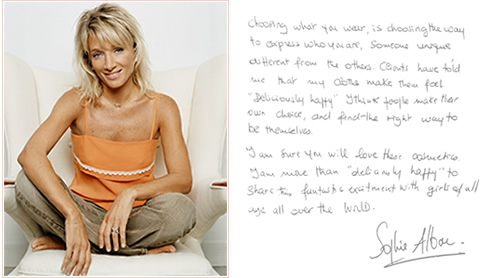 Choosing what you wear, is choosing the way
to express who you are, Someone unique
different from the others. Clients have told
me that my clothes make them feel
"Deliciously happy" I think people make their
own choice, and find the right way to
be themselves.
I am sure you will love these
I am more than "deliciously happy" to
share this fantastic excitment with girls of all
age all over the World.
Sophie